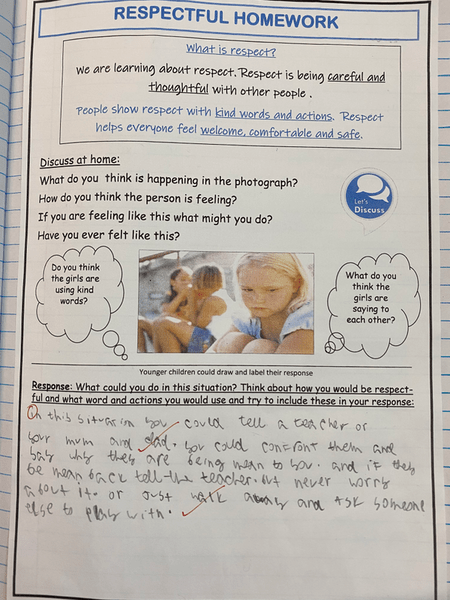 RESPECTFUL HOMEWORK
What is respect?
We are learning about respect. Respect is being careful and
thoughtful with other people .
People show respect with kind words and actions. Respect
helps everyone feel welcome, comfortable and safe.
Discuss at home:
What do you think is happening in the photograph?
How do you think the person is feeling?
If you are feeling like this what might you do?
Have you ever felt like this?
Let's
Discuss
Do you think
the girls are
using kind
words?
What do you
think the
girls are
saying to
each other?
Younger children could draw and label their response
Response: What could you do in this situation? Think about how you would be respect-
ful and what word and actions you would use and try to include these in your response:
In this situation you could tell a teacher or
your mum and dad. you could confront them and
say why they are being mean to you. and if they
be mean back tell the teacher. but never worry
about it. or Just walk away and ask someone
else to play with.